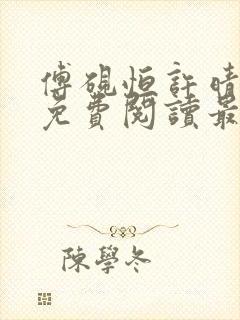 傅硯恒許晴
免費閱讀最
陳學冬